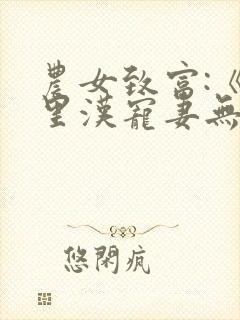 農女致富:《
里漢寵妻無
悠閑瘋